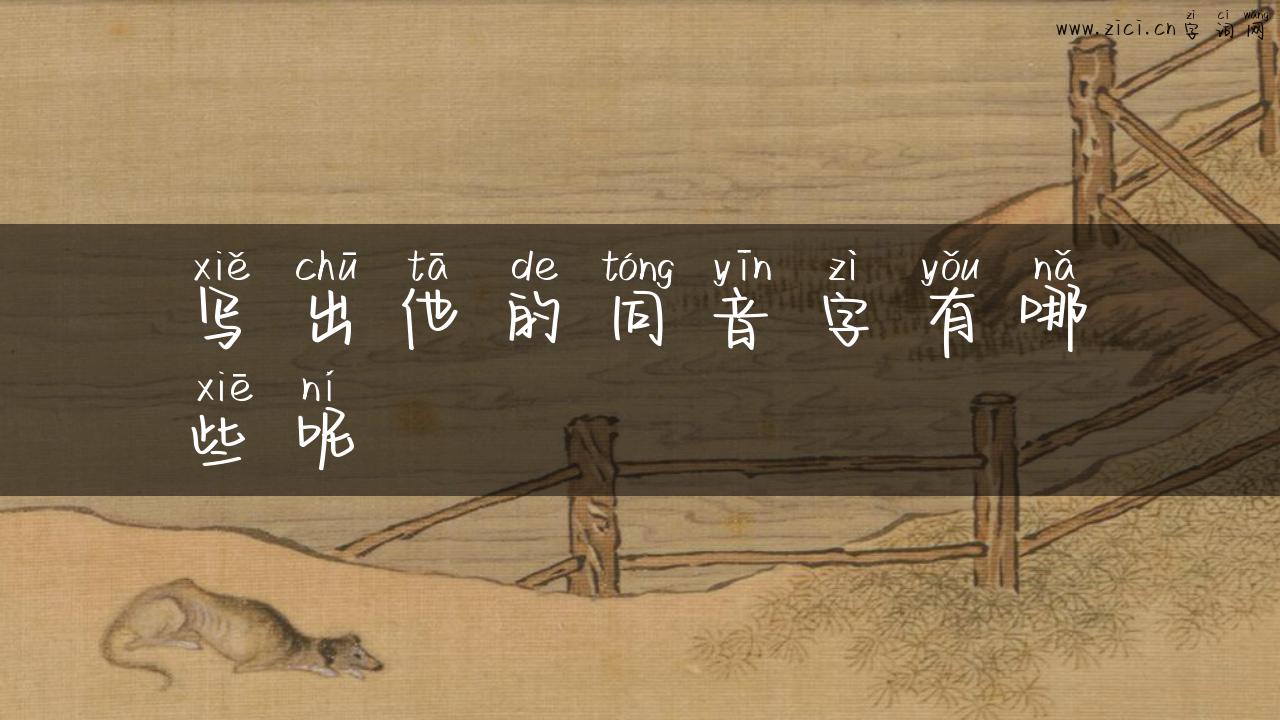 zì cí wǎng
www.zici.cn字词网
xiě chū tā de tóng yīn zì yǒu nǎ
写出他的同音字有哪
xiē ní
些呢